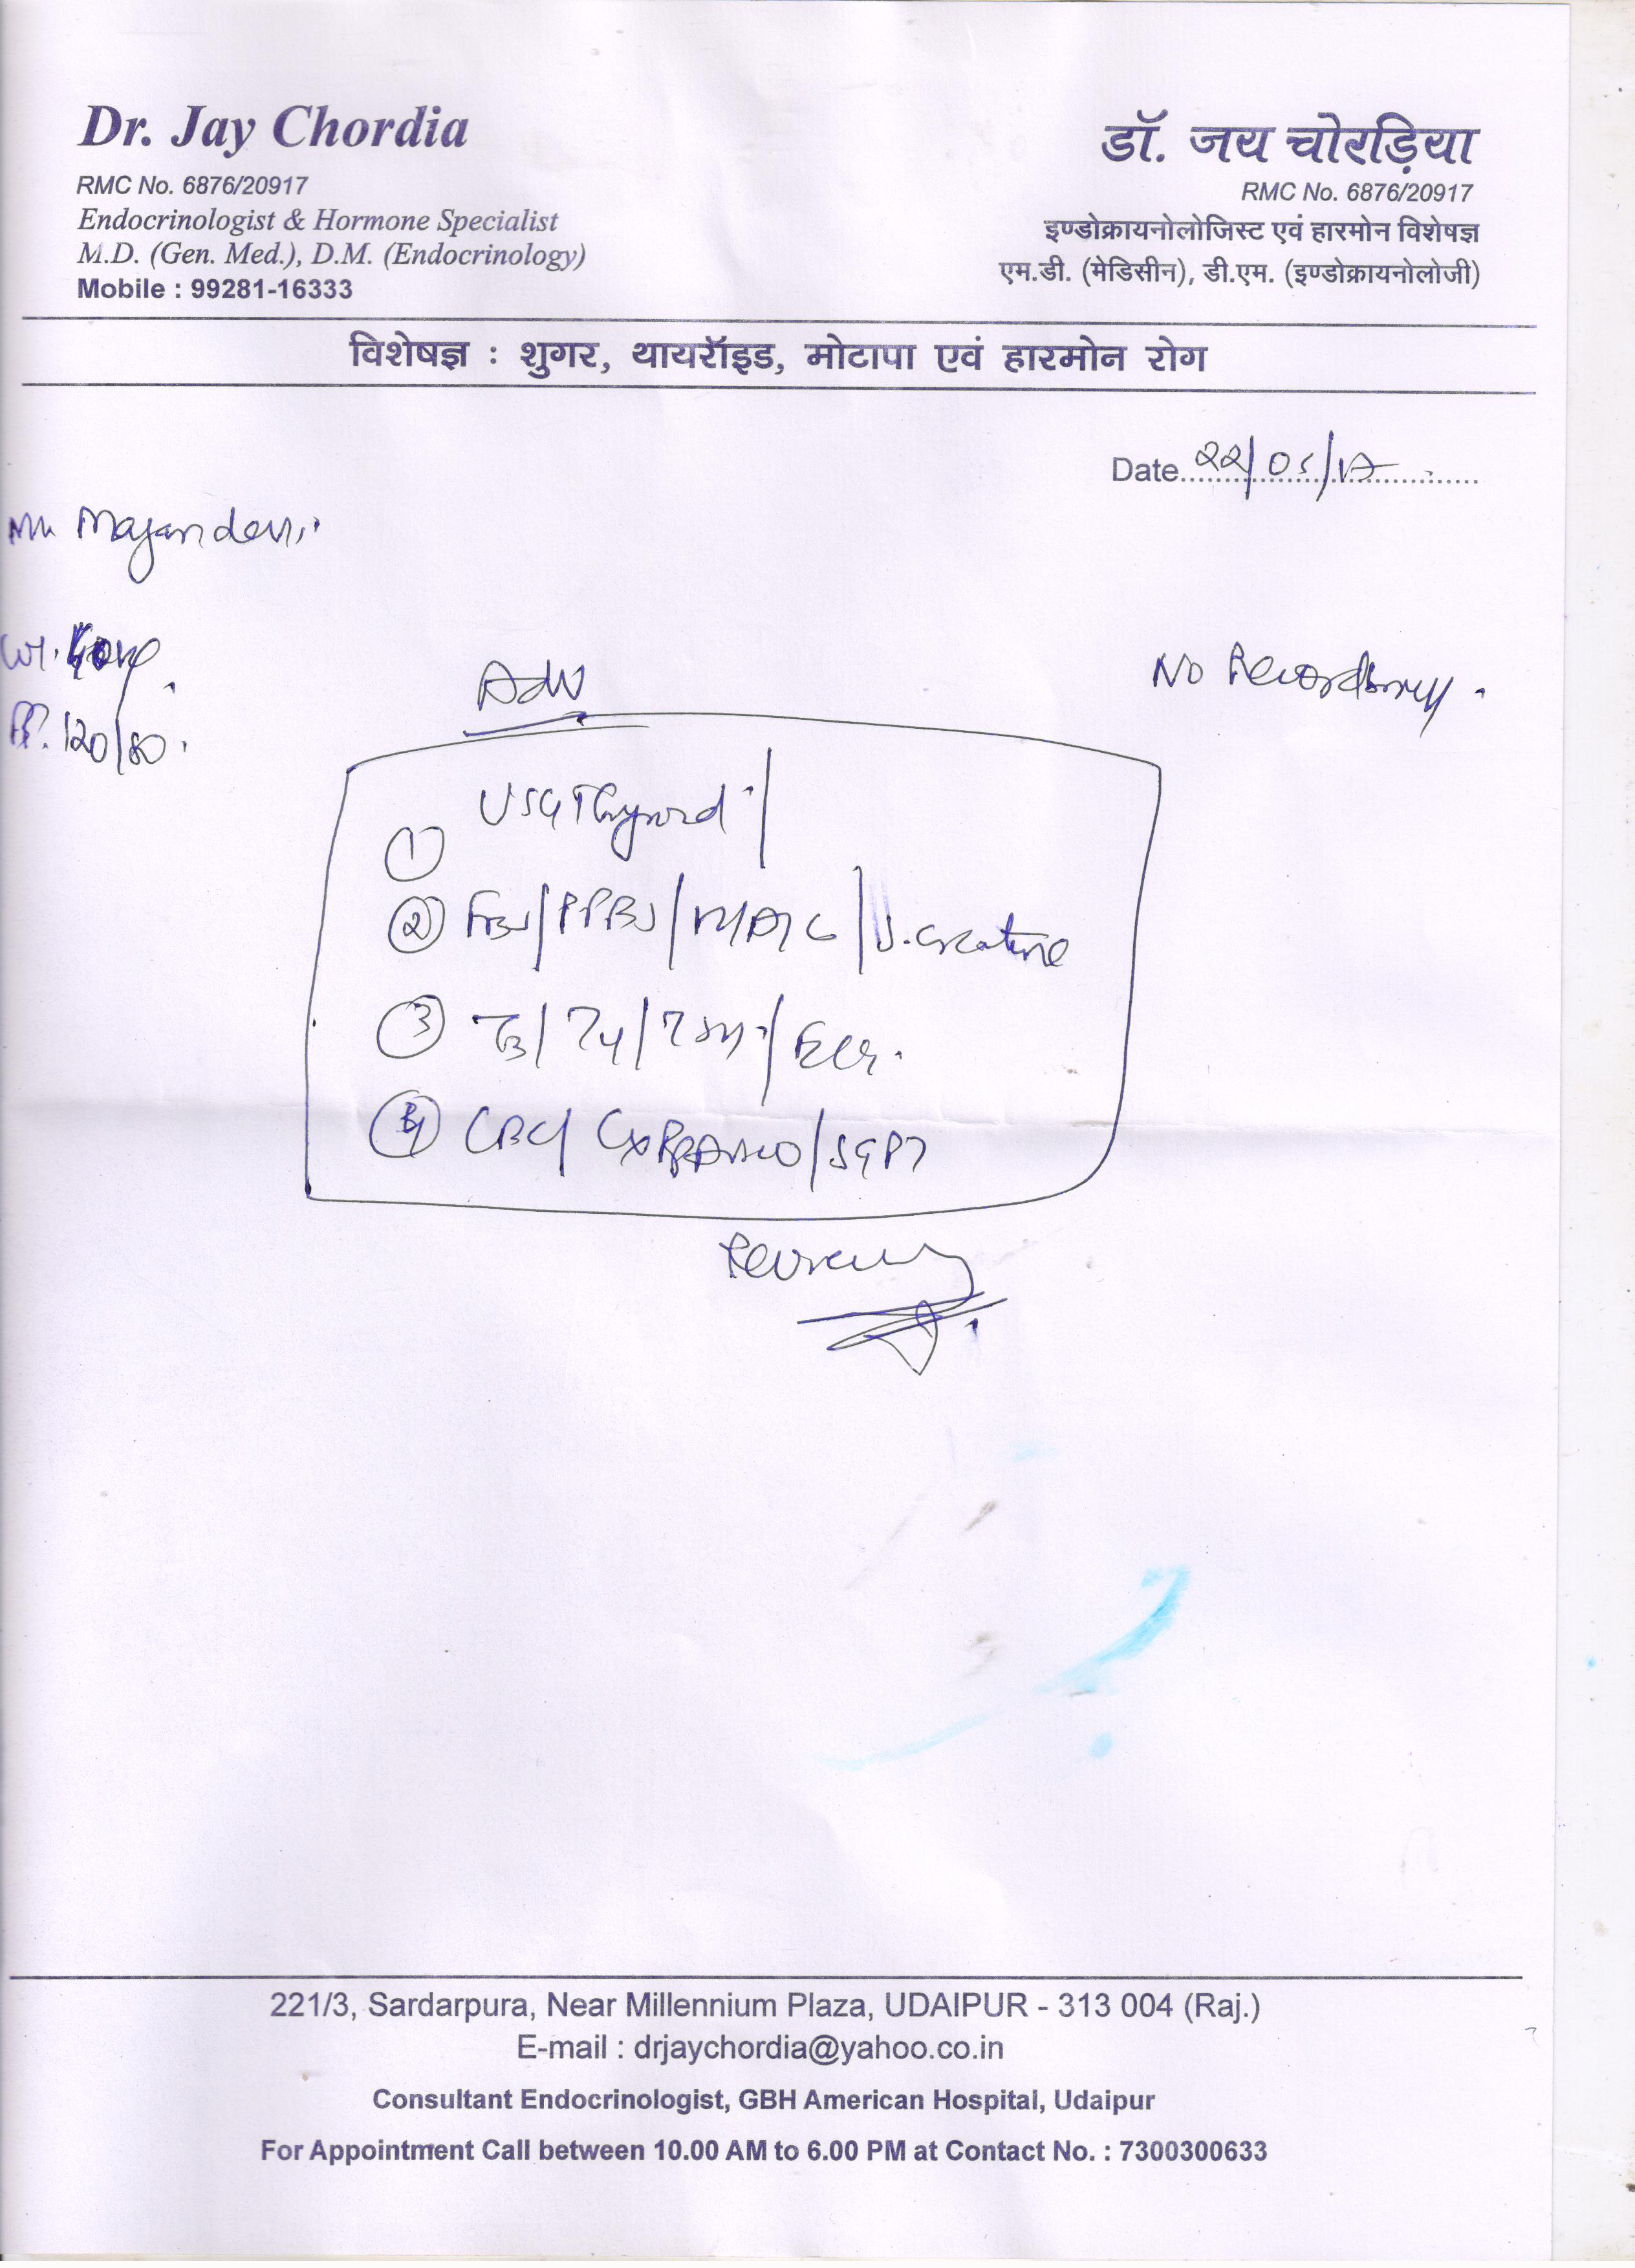 Dr. Jay Chordia
RMC No. 6876/20917
Endocrinologist & Hormone Specialist
M.D. (Gen. Med.), D.M. (Endocrinology)
Mobile : 99281-16333
डॉ. जय चोरड़िया
RMC No. 6876/20917
इण्डोक्रायनोलोजिस्ट एवं हारमोन विशेषज्ञ
एम.डी. (मेडिसीन), डी.एम. (इण्डोक्रायनोलोजी)
विशेषज्ञ : शुगर, थायरॉइड, मोटापा एवं हारमोन रोग
Date 22/05/17
Wt.
BP. 120/80.
Adv
No
① USG Thyroid
② FBS/PPBS/HbA1C/S. creatine
③ T3/T4/TSH/ECG.
④ CBC/ CxR /SGPT
221/3, Sardarpura, Near Millennium Plaza, UDAIPUR - 313 004 (Raj.)
E-mail : drjaychordia@yahoo.co.in
Consultant Endocrinologist, GBH American Hospital, Udaipur
For Appointment Call between 10.00 AM to 6.00 PM at Contact No. : 7300300633